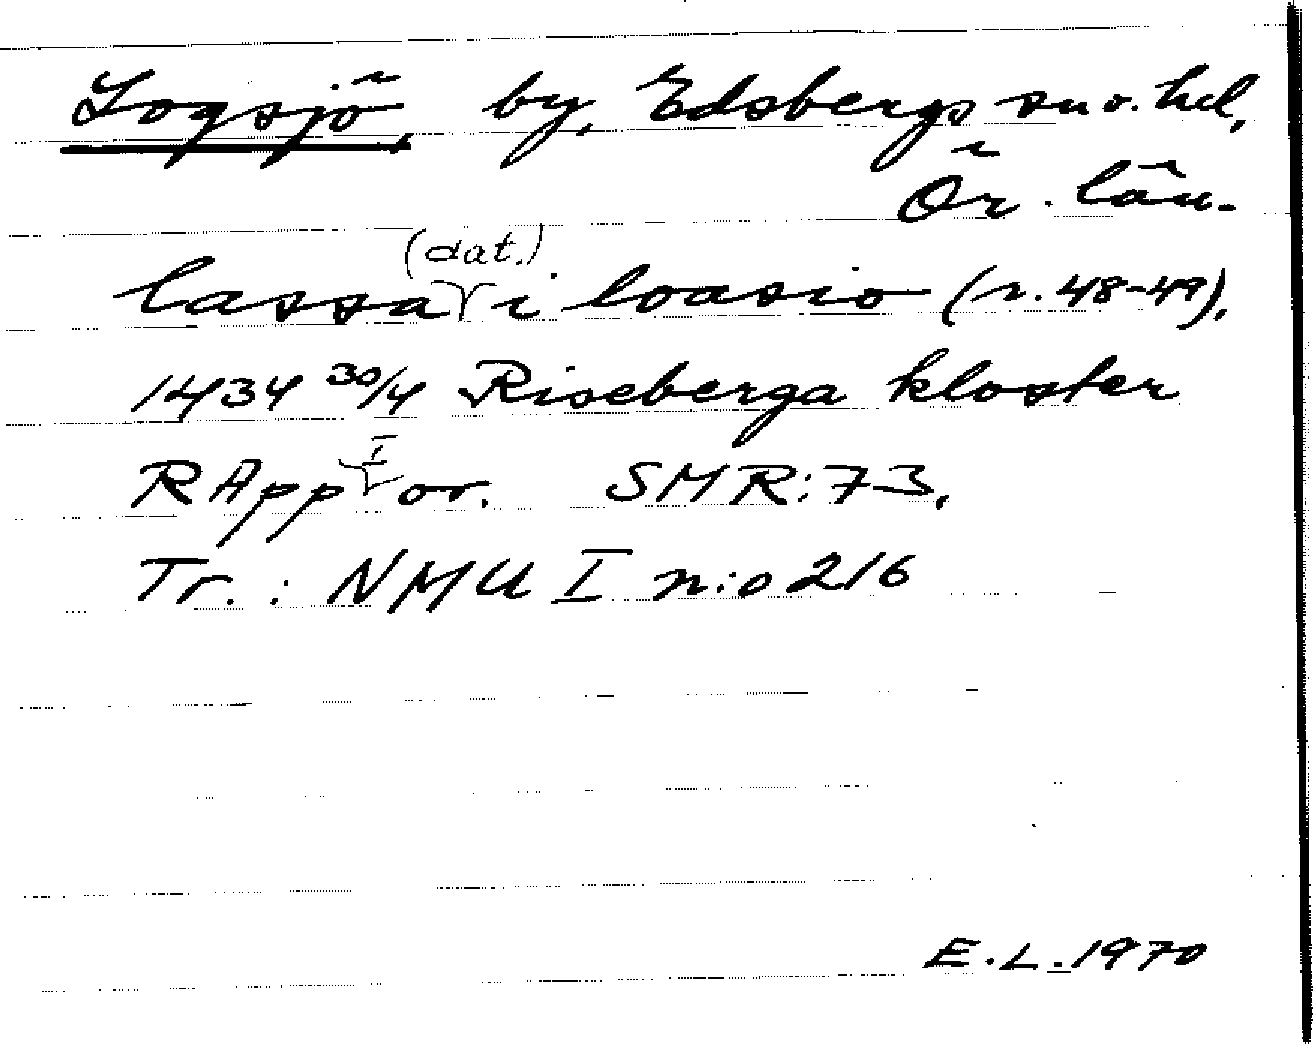 Logsjö, by, Edsbergs sn o. hd,
Ör. län.
lassa (dat.) i loasio (r. 48-49).
1434 30/4 Riseberga kloster
RApp I or. SMR:73.
Tr.: NMU I n:o 216
E.L. 1970